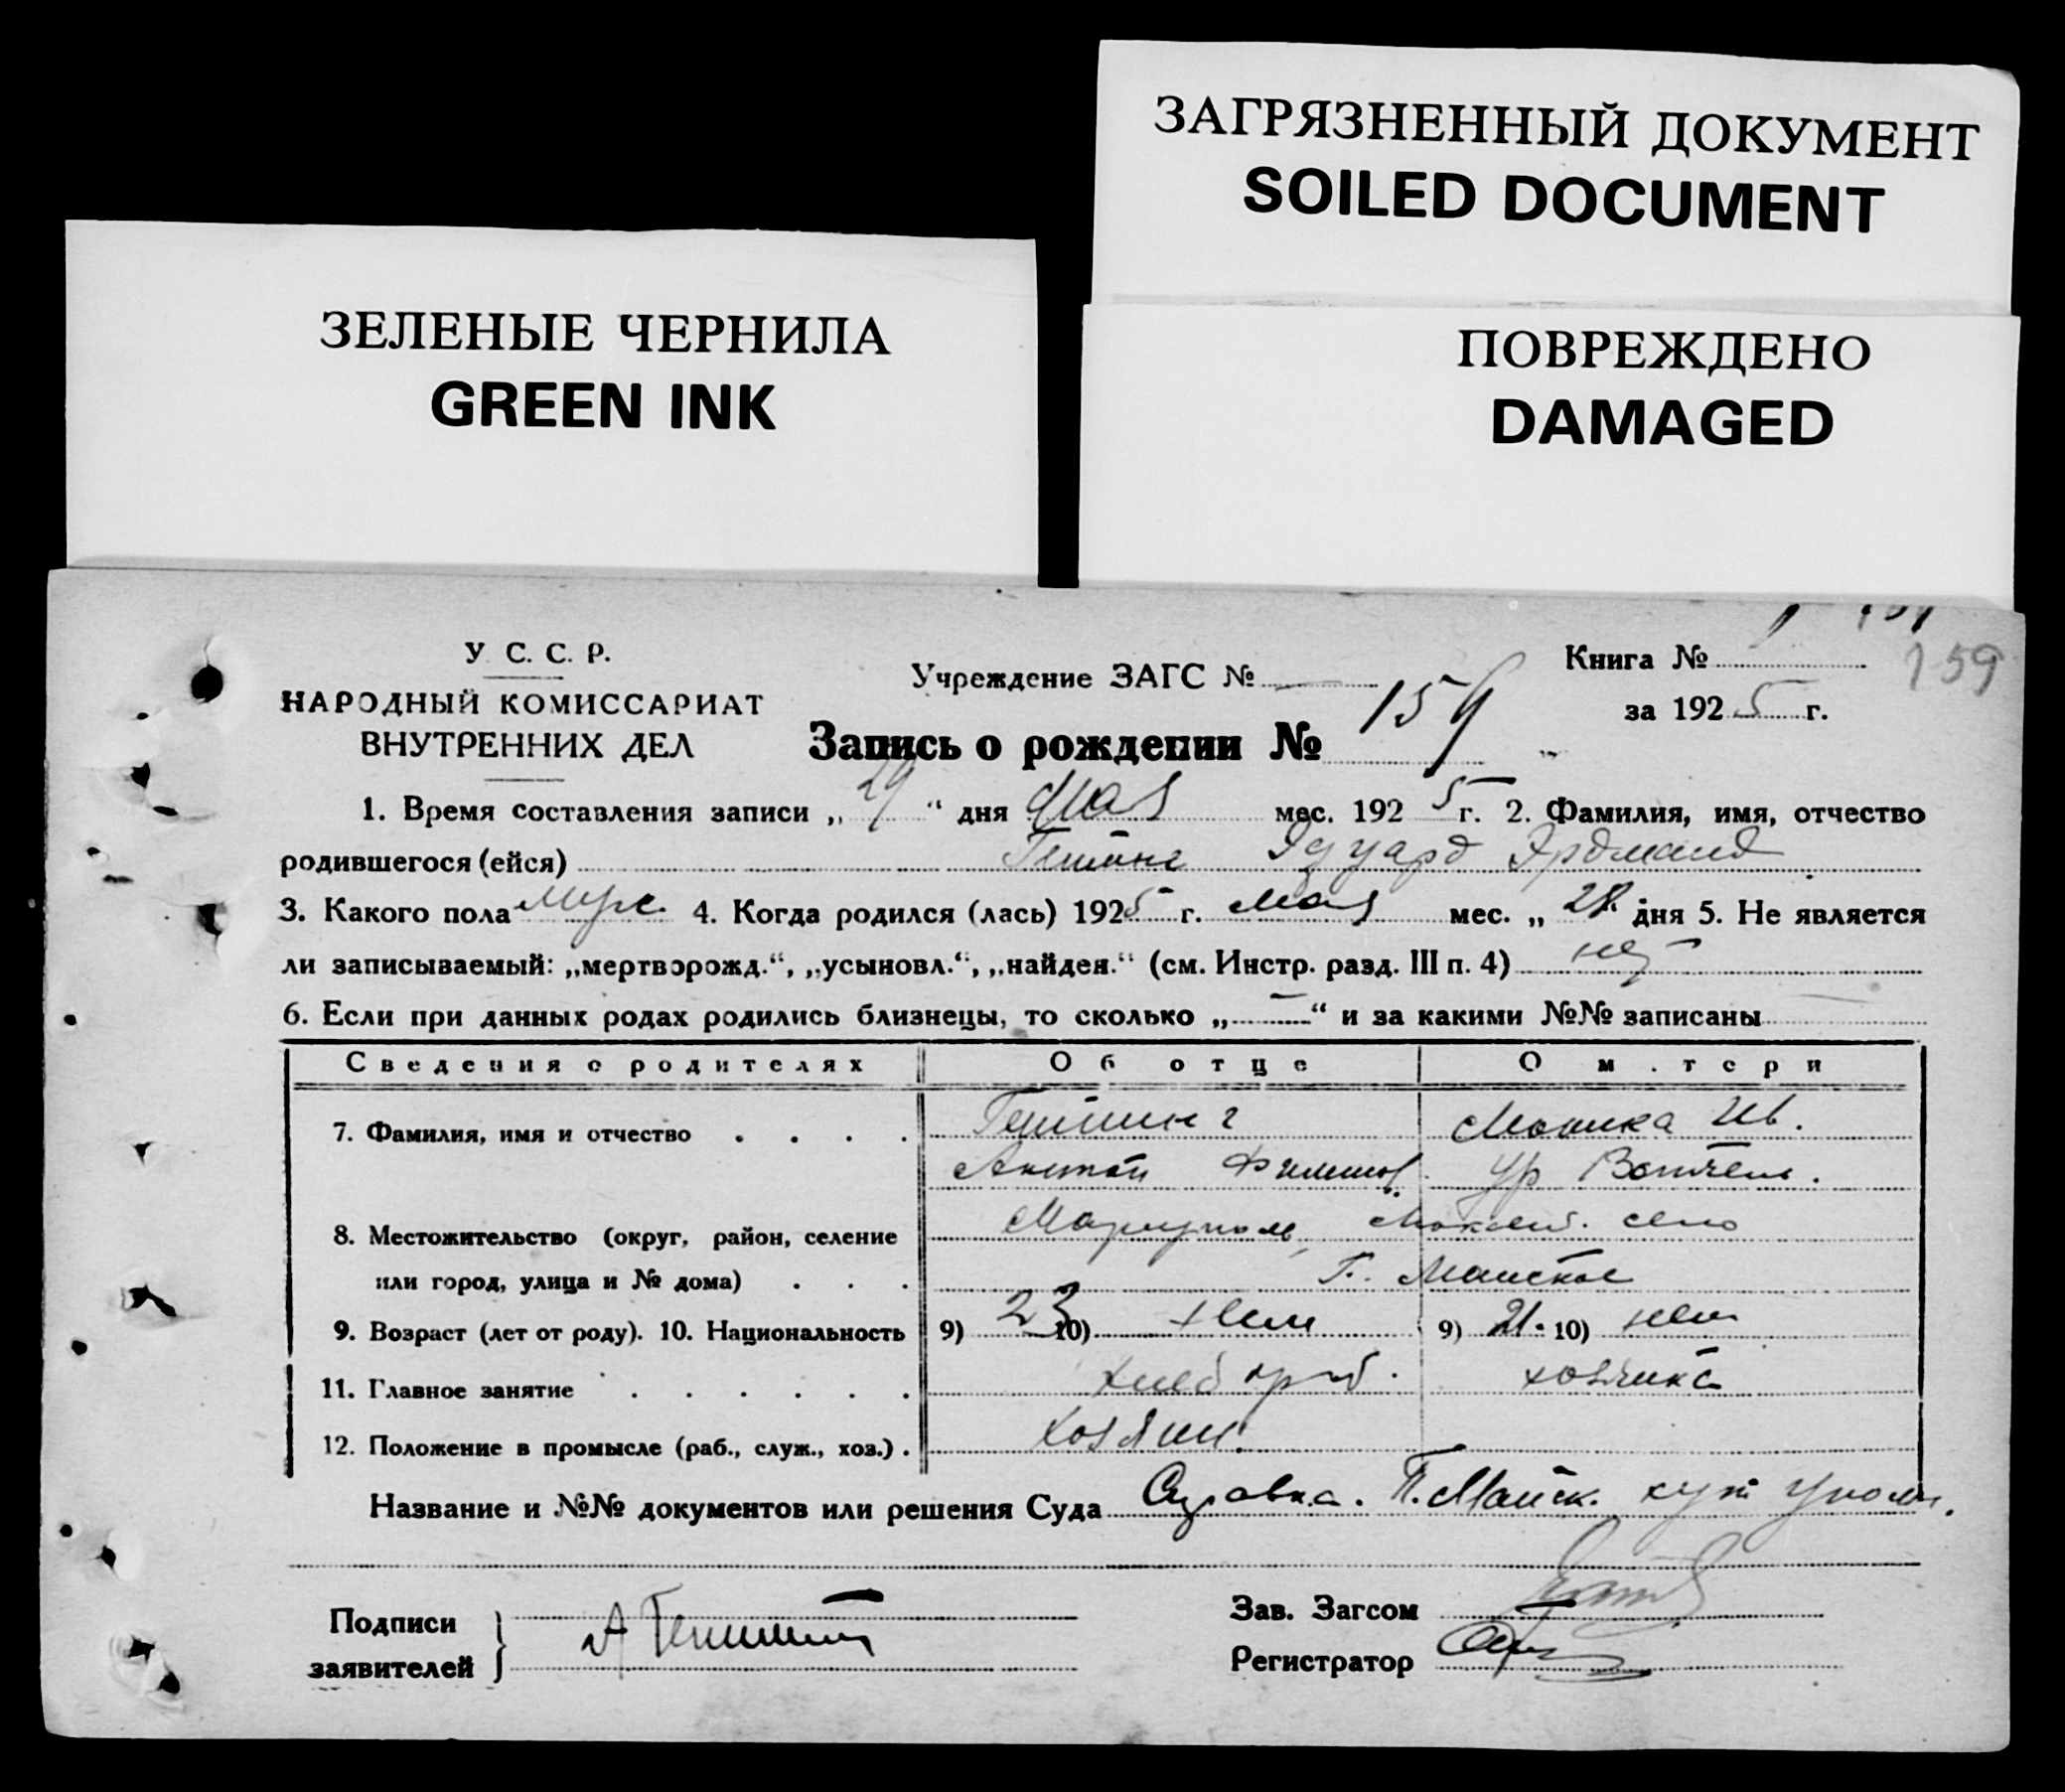 ЗАГРЯЗНЕННЫЙ ДОКУМЕНТ
SOILED DOCUMENT
ЗЕЛЕНЫЕ ЧЕРНИЛА
GREEN INK
ПОВРЕЖДЕНО
DAMAGED
У. С. С. Р.
НАРОДНЫЙ КОМИССАРИАТ
ВНУТРЕННИХ ДЕЛ
Учреждение ЗАГС № —
Книга № 1
159
за 1925 г.
Запись о рождении № 159
1. Время составления записи „29“ дня мая мес. 1925 г. 2. Фамилия, имя, отчество
родившегося (ейся) Эдуард
3. Какого пола муж. 4. Когда родился (лась) 1925 г. мая мес. „28“ дня 5. Не является
ли записываемый: „мертворожд.“, „усыновл.“, „найден.“ (см. Инстр. разд. III п. 4) нет
6. Если при данных родах родились близнецы, то сколько „—“ и за какими №№ записаны
Сведения о родителях Об отце О матери
7. Фамилия, имя и отчество Моника Ив.
Антон ур
8. Местожительство (округ, район, селение Мариуполь село
или город, улица и № дома)
9. Возраст (лет от роду). 10. Национальность 9) 23 10) нем 9) 21. 10) нем
11. Главное занятие хлебороб. хозяйка
12. Положение в промысле (раб., служ., хоз.) хозяин
Название и №№ документов или решения Суда Справка.
Подписи
заявителей
Зав. Загсом
Регистратор